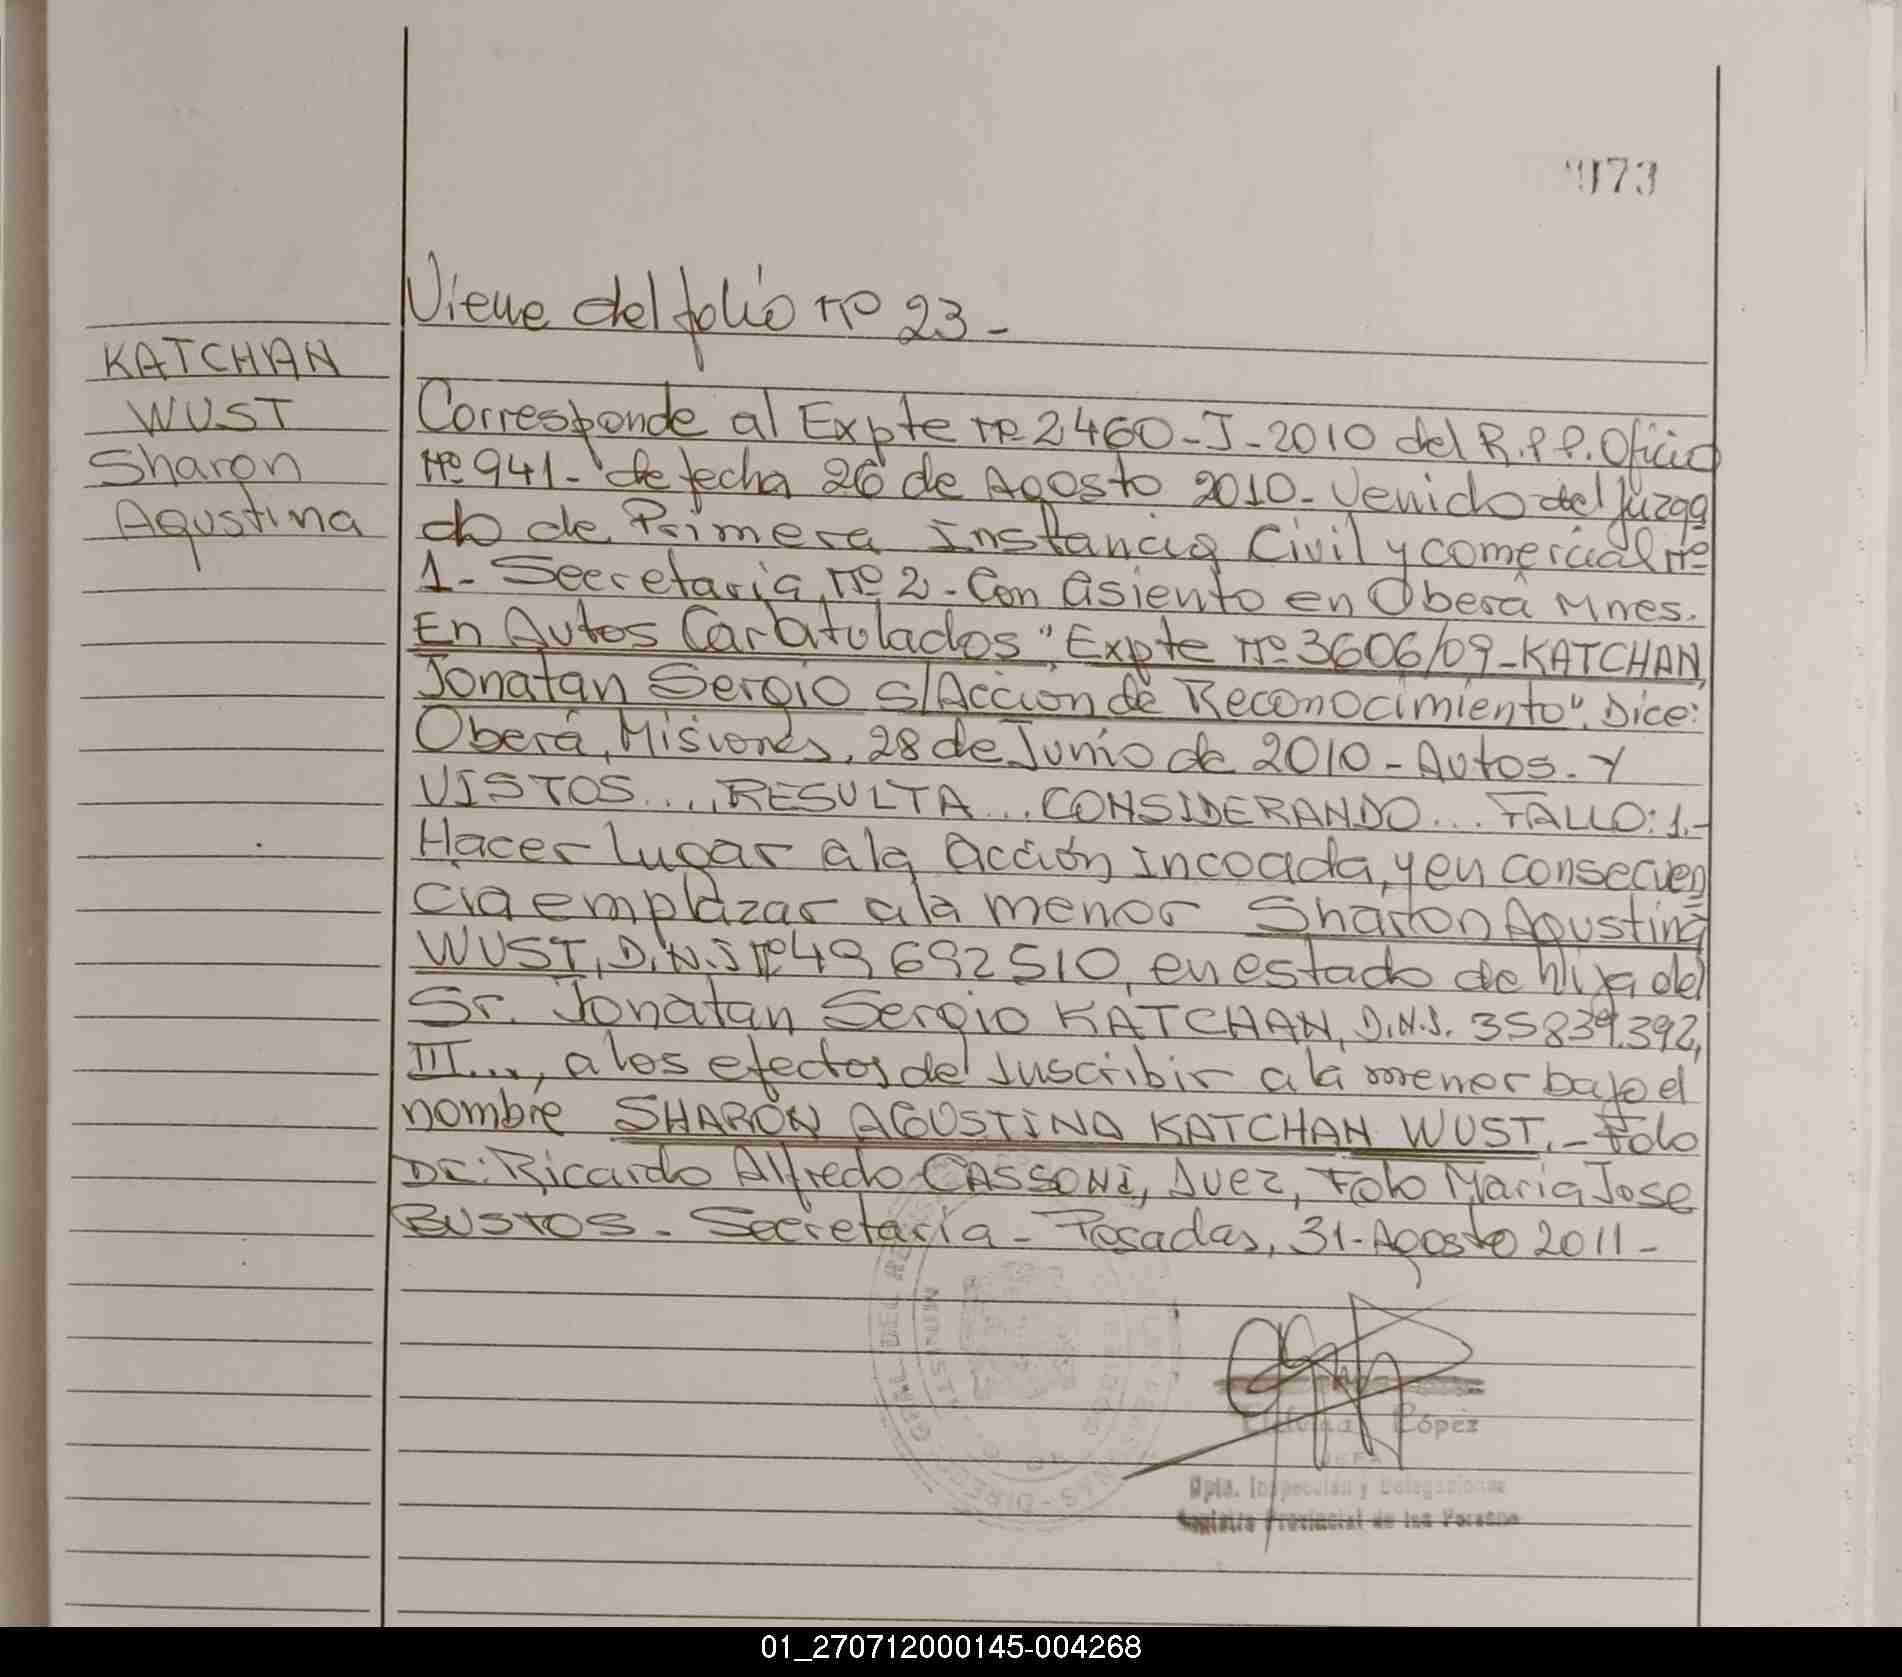 173
Viene del folio Nº 23-
KATCHAN
WUST
Sharon
Agustina
Corresponde al Expte Nº 2460-J-2010 del R.P.P. Oficio
Nº 941- de fecha 26 de Agosto 2010- Venido del Juzga
do de Primera Instancia Civil y comercial Nº
1- Secretaria Nº 2- Con asiento en Oberá Mnes.
En Autos Caratulados "Expte Nº 3606/09-KATCHAN,
Jonatan Sergio S/Acción de Reconocimiento". Dice:
Oberá, Misiones, 28 de Junio de 2010- Autos. Y
VISTOS.... RESULTA... CONSIDERANDO... FALLO: 1.-
Hacer lugar a la acción incoada, y en consecuen
cia emplazar a la menor Sharon Agustina
WUST, D.N.I Nº 49692510, en estado de hija del
Sr. Jonatan Sergio KATCHAN, D.N.I. 35839.392,
III..., a los efectos de suscribir a la menor bajo el
nombre SHARON AGUSTINA KATCHAN WUST.- Fdo
Dr: Ricardo Alfredo CASSONI, Juez, Fdo Maria Jose
BUSTOS- Secretaria- Posadas, 31-Agosto 2011-
López
JEFA
Dpto. Inspección y Delegaciones
Registro Provincial de las Personas
01_270712000145-004268